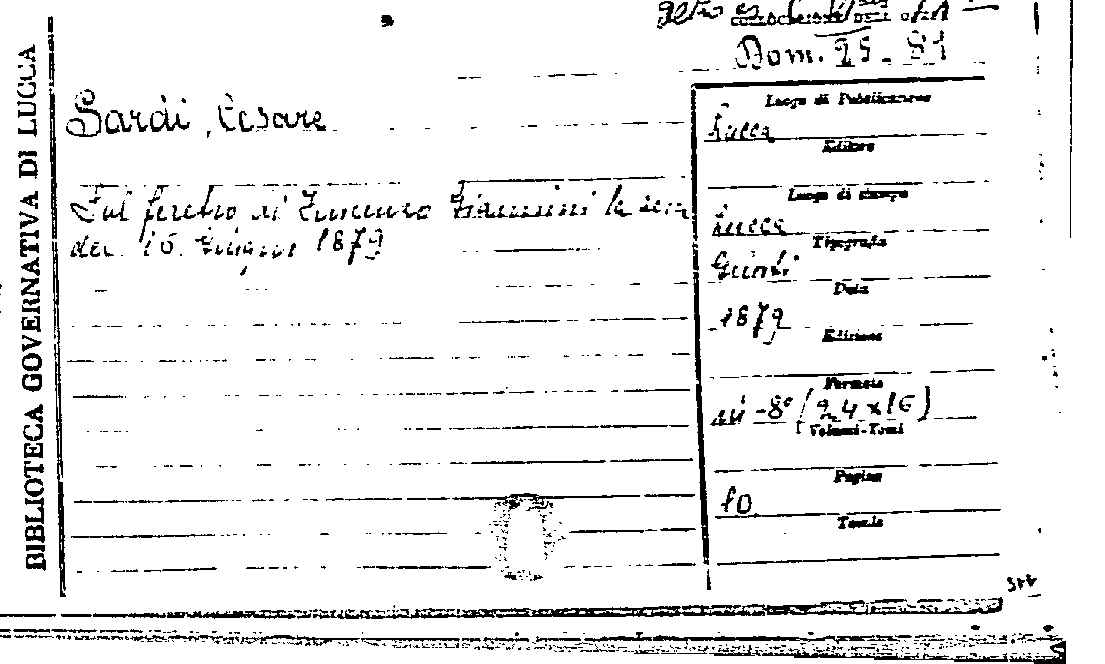 BIBLIOTECA GOVERNATIVA DI LUCCA
altro es.
Dom. 25. 81
Sardi, Cesare
Sul feretro di Giannini la sera
del 16 giugno 1879
Luogo di Pubblicazione
Lucca
Editore
Luogo di stampa
Lucca
Tipografia
Giusti
Data
1879
Edizione
Formato
in-8° (24x16)
Volumi-Tomi
Pagine
10
Tavole